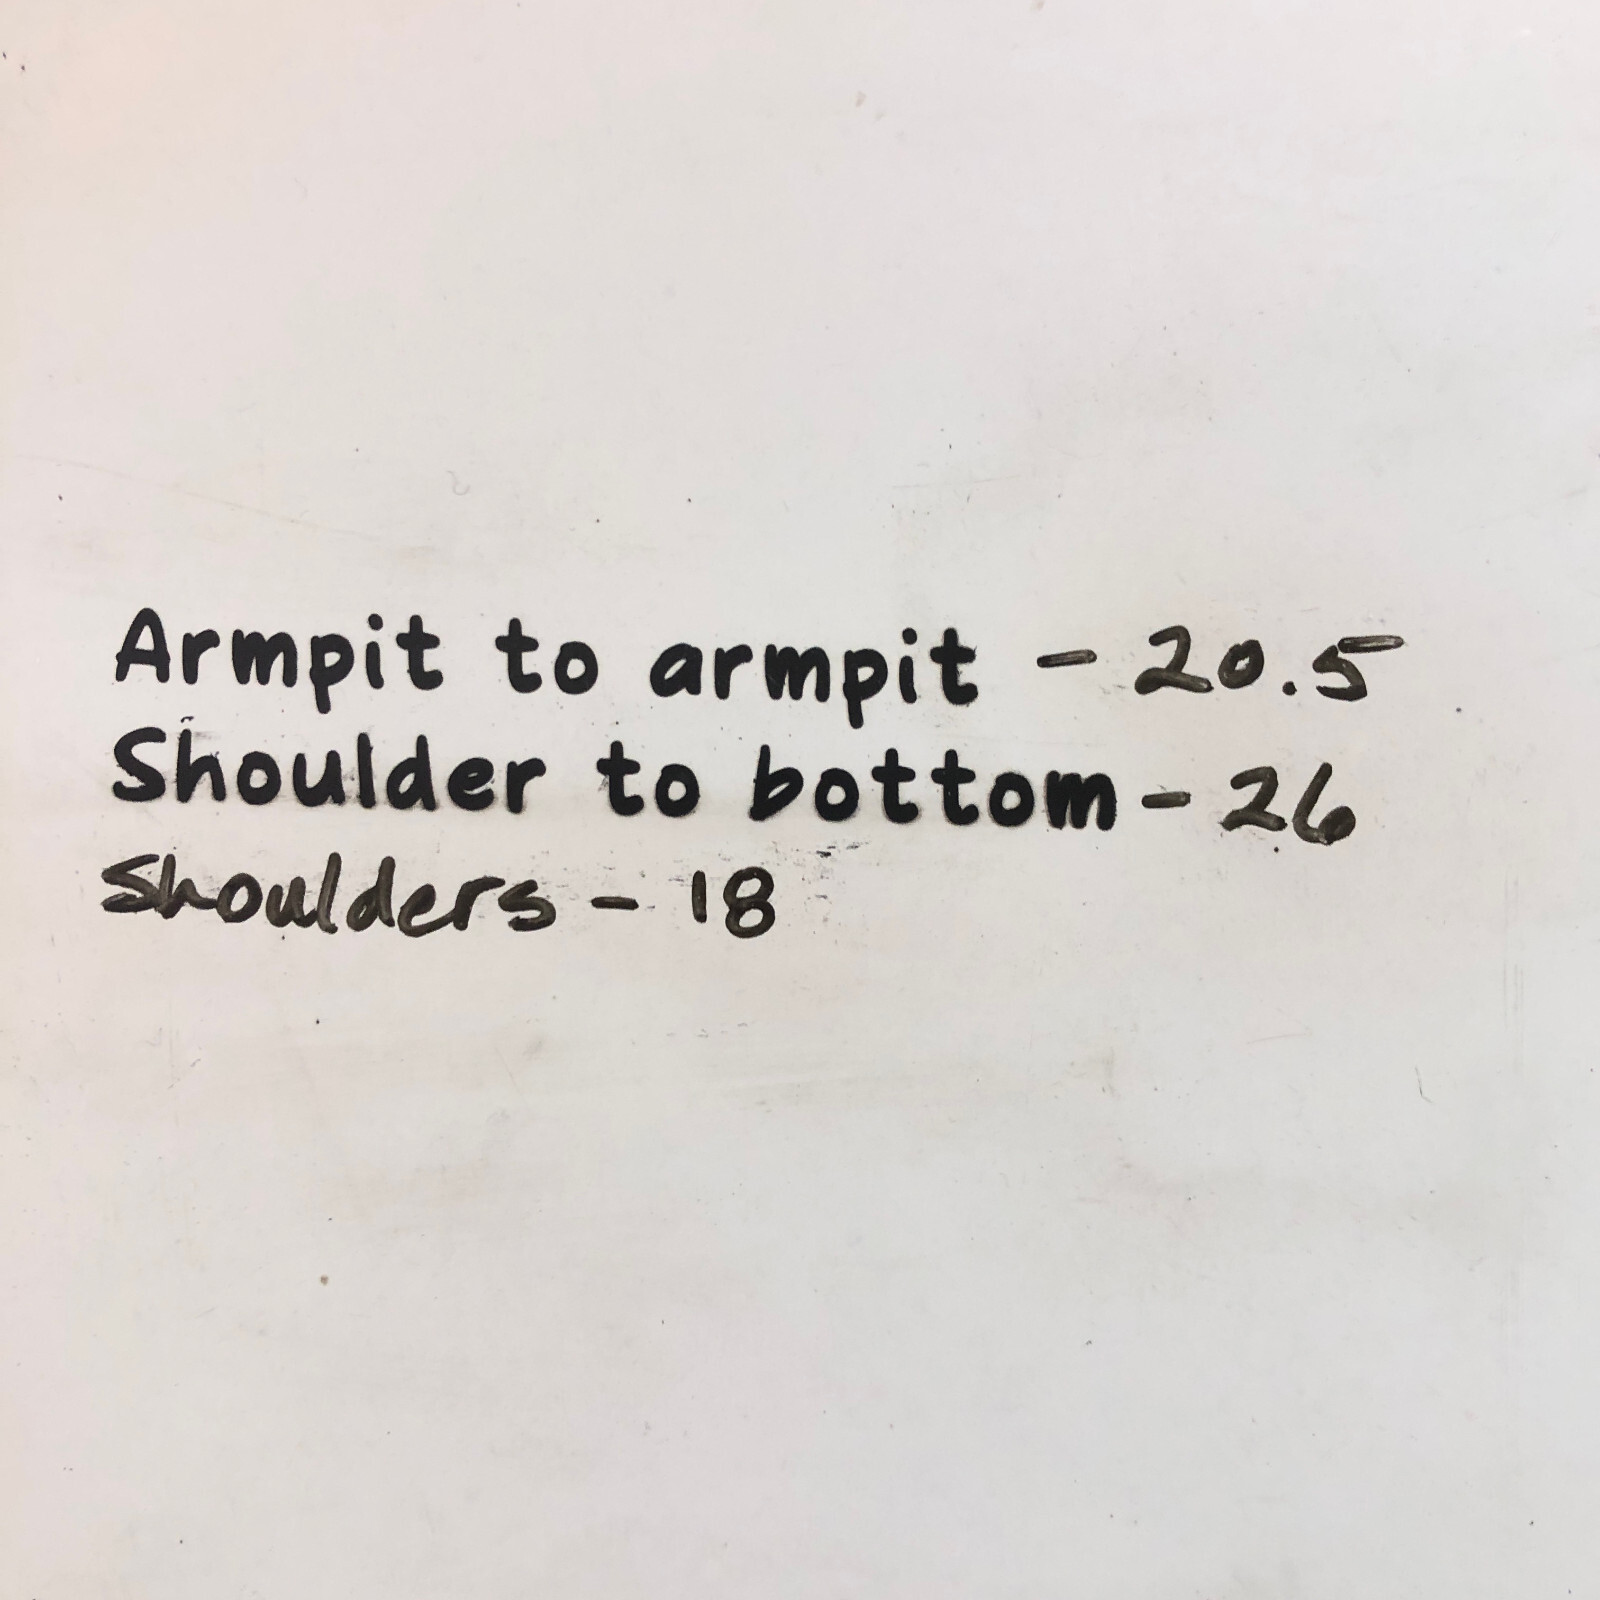 Armpit to armpit - 20.5
Shoulder to bottom - 26
Shoulders - 18